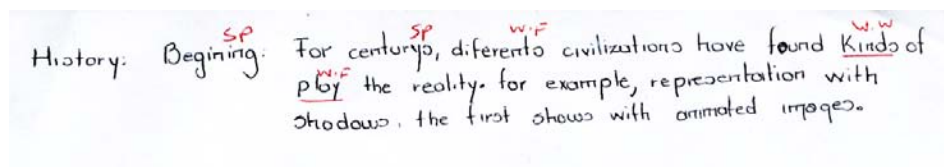 SP SP W.F W.W
History: Begining: For centurys, diferents civilizations have found Kinds of
W.F
play the reality. for example, representation with
shadows, the first shows with animated images.